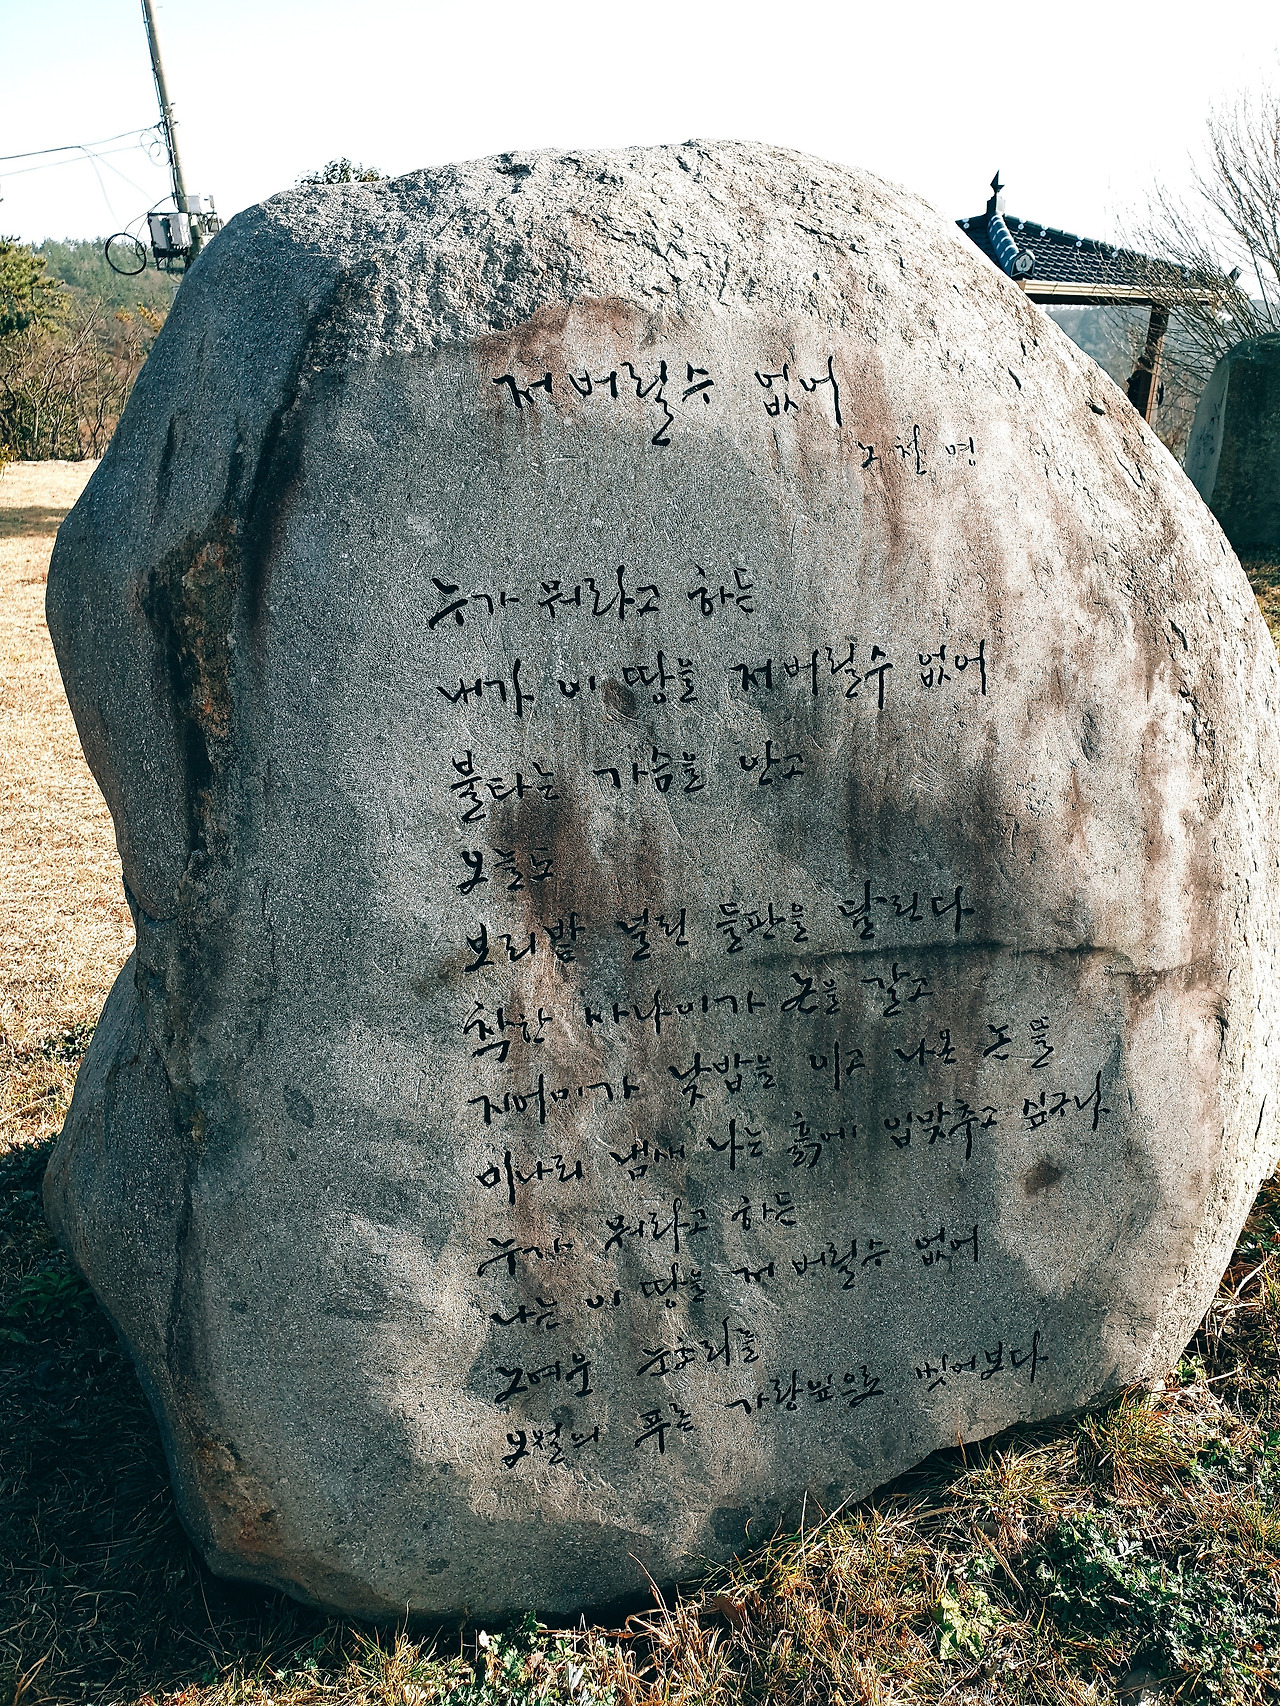 저버릴수 없어
노천명
누가 뭐라고 하든
내가 이 땅을 저버릴수 없어
불타는 가슴을 안고
오늘도
보리밭 널린 들판을 달린다
착한 사나이가 논을 갈고
지어미가 낮밥을 이고 나온 논뚤
미나리 냄새 나는 흙에 입맞추고 싶구나
누가 뭐라고 하든
나는 이 땅을 저 버릴수 없어
노여운 눈초리를
오월의 푸른 가랑잎으로 씻어보다